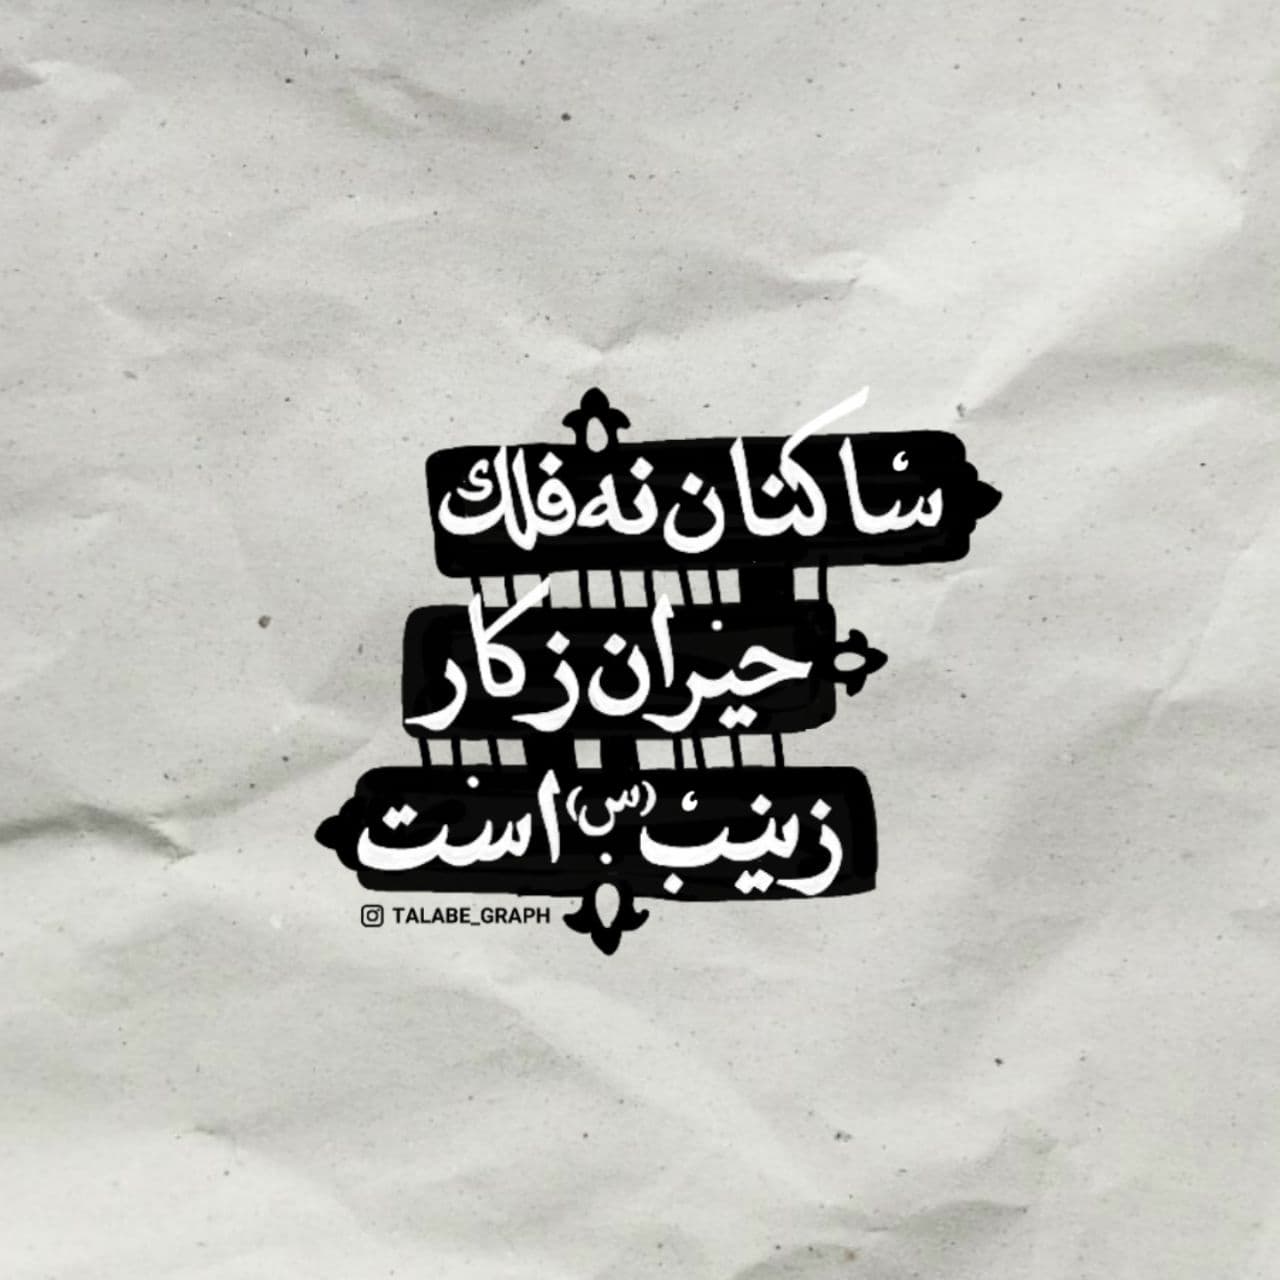 ساکنان نه فلک
حیران ز کار
زینب (س) است
TALABE_GRAPH